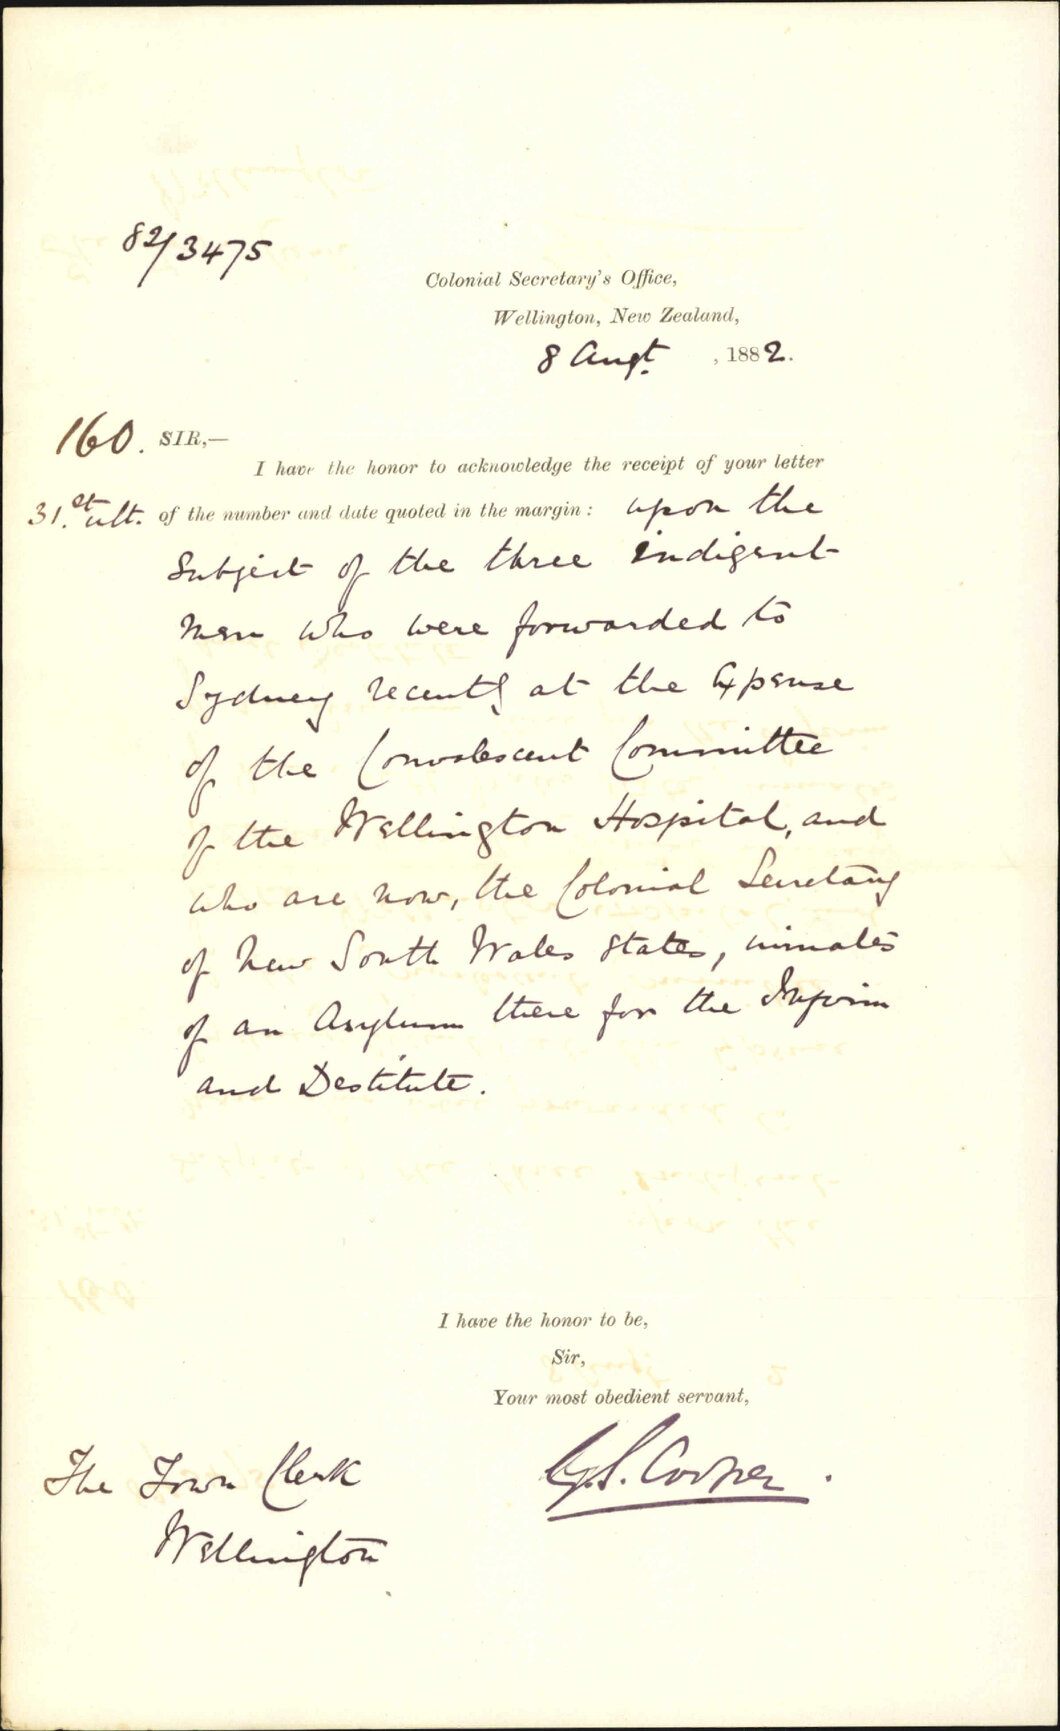 82/3475
Colonial Secretary's Office,
Wellington, New Zealand,
8 Augt. , 1882.
160. SIR,—
I have the honor to acknowledge the receipt of your letter
31.st ult. of the number and date quoted in the margin: upon the
Subject of the three indigent
men who were forwarded to
Sydney recently at the Expense
of the Convalescent Committee
of the Wellington Hospital, and
who are now, the Colonial Secretary
of New South Wales states, inmates
of an Asylum there for the Infirm
and Destitute.
I have the honor to be,
Sir,
Your most obedient servant,
G.S. Cooper.
The Town Clerk
Wellington